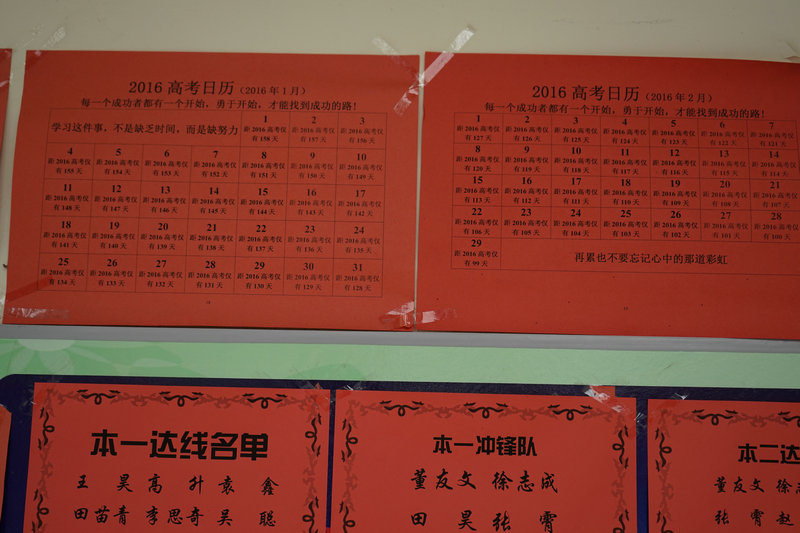 2016 高考日历（2016 年 1 月）
每一个成功者都有一个开始，勇于开始，才能找到成功的路！
学习这件事，不是缺乏时间，而是缺努力 1 2 3
距 2016 高考仅 距 2016 高考仅 距 2016 高考仅
有 158 天 有 157 天 有 156 天
4 5 6 7 8 9 10
距 2016 高考仅 距 2016 高考仅 距 2016 高考仅 距 2016 高考仅 距 2016 高考仅 距 2016 高考仅 距 2016 高考仅
有 155 天 有 154 天 有 153 天 有 152 天 有 151 天 有 150 天 有 149 天
11 12 13 14 15 16 17
距 2016 高考仅 距 2016 高考仅 距 2016 高考仅 距 2016 高考仅 距 2016 高考仅 距 2016 高考仅 距 2016 高考仅
有 148 天 有 147 天 有 146 天 有 145 天 有 144 天 有 143 天 有 142 天
18 19 20 21 22 23 24
距 2016 高考仅 距 2016 高考仅 距 2016 高考仅 距 2016 高考仅 距 2016 高考仅 距 2016 高考仅 距 2016 高考仅
有 141 天 有 140 天 有 139 天 有 138 天 有 137 天 有 136 天 有 135 天
25 26 27 28 29 30 31
距 2016 高考仅 距 2016 高考仅 距 2016 高考仅 距 2016 高考仅 距 2016 高考仅 距 2016 高考仅 距 2016 高考仅
有 134 天 有 133 天 有 132 天 有 131 天 有 130 天 有 129 天 有 128 天
2016 高考日历（2016 年 2 月）
每一个成功者都有一个开始，勇于开始，才能找到成功的路！
1 2 3 4 5 6 7
距 2016 高考仅 距 2016 高考仅 距 2016 高考仅 距 2016 高考仅 距 2016 高考仅 距 2016 高考仅 距 2016 高考仅
有 127 天 有 126 天 有 125 天 有 124 天 有 123 天 有 122 天 有 121 天
8 9 10 11 12 13 14
距 2016 高考仅 距 2016 高考仅 距 2016 高考仅 距 2016 高考仅 距 2016 高考仅 距 2016 高考仅 距 2016 高考仅
有 120 天 有 119 天 有 118 天 有 117 天 有 116 天 有 115 天 有 114 天
15 16 17 18 19 20 21
距 2016 高考仅 距 2016 高考仅 距 2016 高考仅 距 2016 高考仅 距 2016 高考仅 距 2016 高考仅 距 2016 高考仅
有 113 天 有 112 天 有 111 天 有 110 天 有 109 天 有 108 天 有 107 天
22 23 24 25 26 27 28
距 2016 高考仅 距 2016 高考仅 距 2016 高考仅 距 2016 高考仅 距 2016 高考仅 距 2016 高考仅 距 2016 高考仅
有 106 天 有 105 天 有 104 天 有 103 天 有 102 天 有 101 天 有 100 天
29 再累也不要忘记心中的那道彩虹
距 2016 高考仅
有 99 天
本一达线名单
王 昊 高 升 袁 鑫
田苗青 李思奇 吴 聪
本一冲锋队
董友文 徐志成
田 昊 张 霄
本二达
董友文 徐志
张 霄 赵